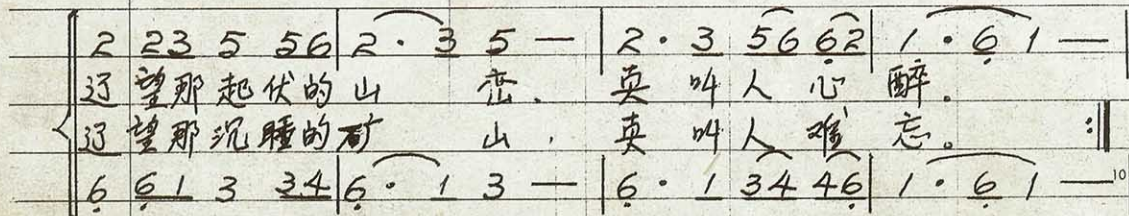 2 23 5 56 | 2 · 3 5 — | 2 · 3 56 62 | 1 · 6 1 —
辽望那起伏的山峦. 真叫人心醉。
辽望那沉睡的矿山. 真叫人难忘。 :‖
6 61 3 34 | 6 · 1 3 — | 6 · 1 34 46 | 1 · 6 1 — 10